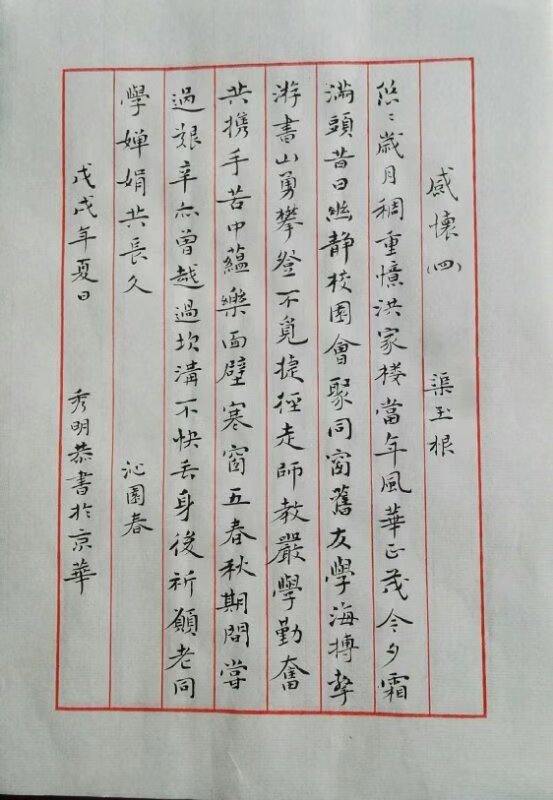 感懷(四) 渠玉根
悠〻歲月稠重憶洪家楼當年風華正茂今夕霜
滿頭昔日幽静校園會聚同窗舊友學海搏擊
游書山勇攀登不覓捷徑走師教嚴學勤奮
共携手苦中蘊樂面壁寒窗五春秋期間嘗
過艱辛亦曾越過坎溝不快丢身後祈願老同
學嬋娟共長久 沁園春
戊戌年夏日 秀明恭書於京華